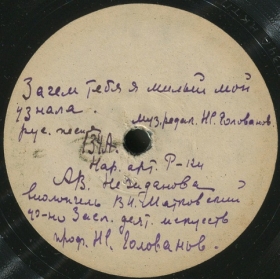 Зачем тебя я милый мой
узнала. муз. редак. НС. Голованов
рус. песня
134А.
Нар. арт. Р-ки
А.В. Нежданова
виолончель В.И. Матковский
ф-но Засл. деят. искусств
проф. НС. Голованов.